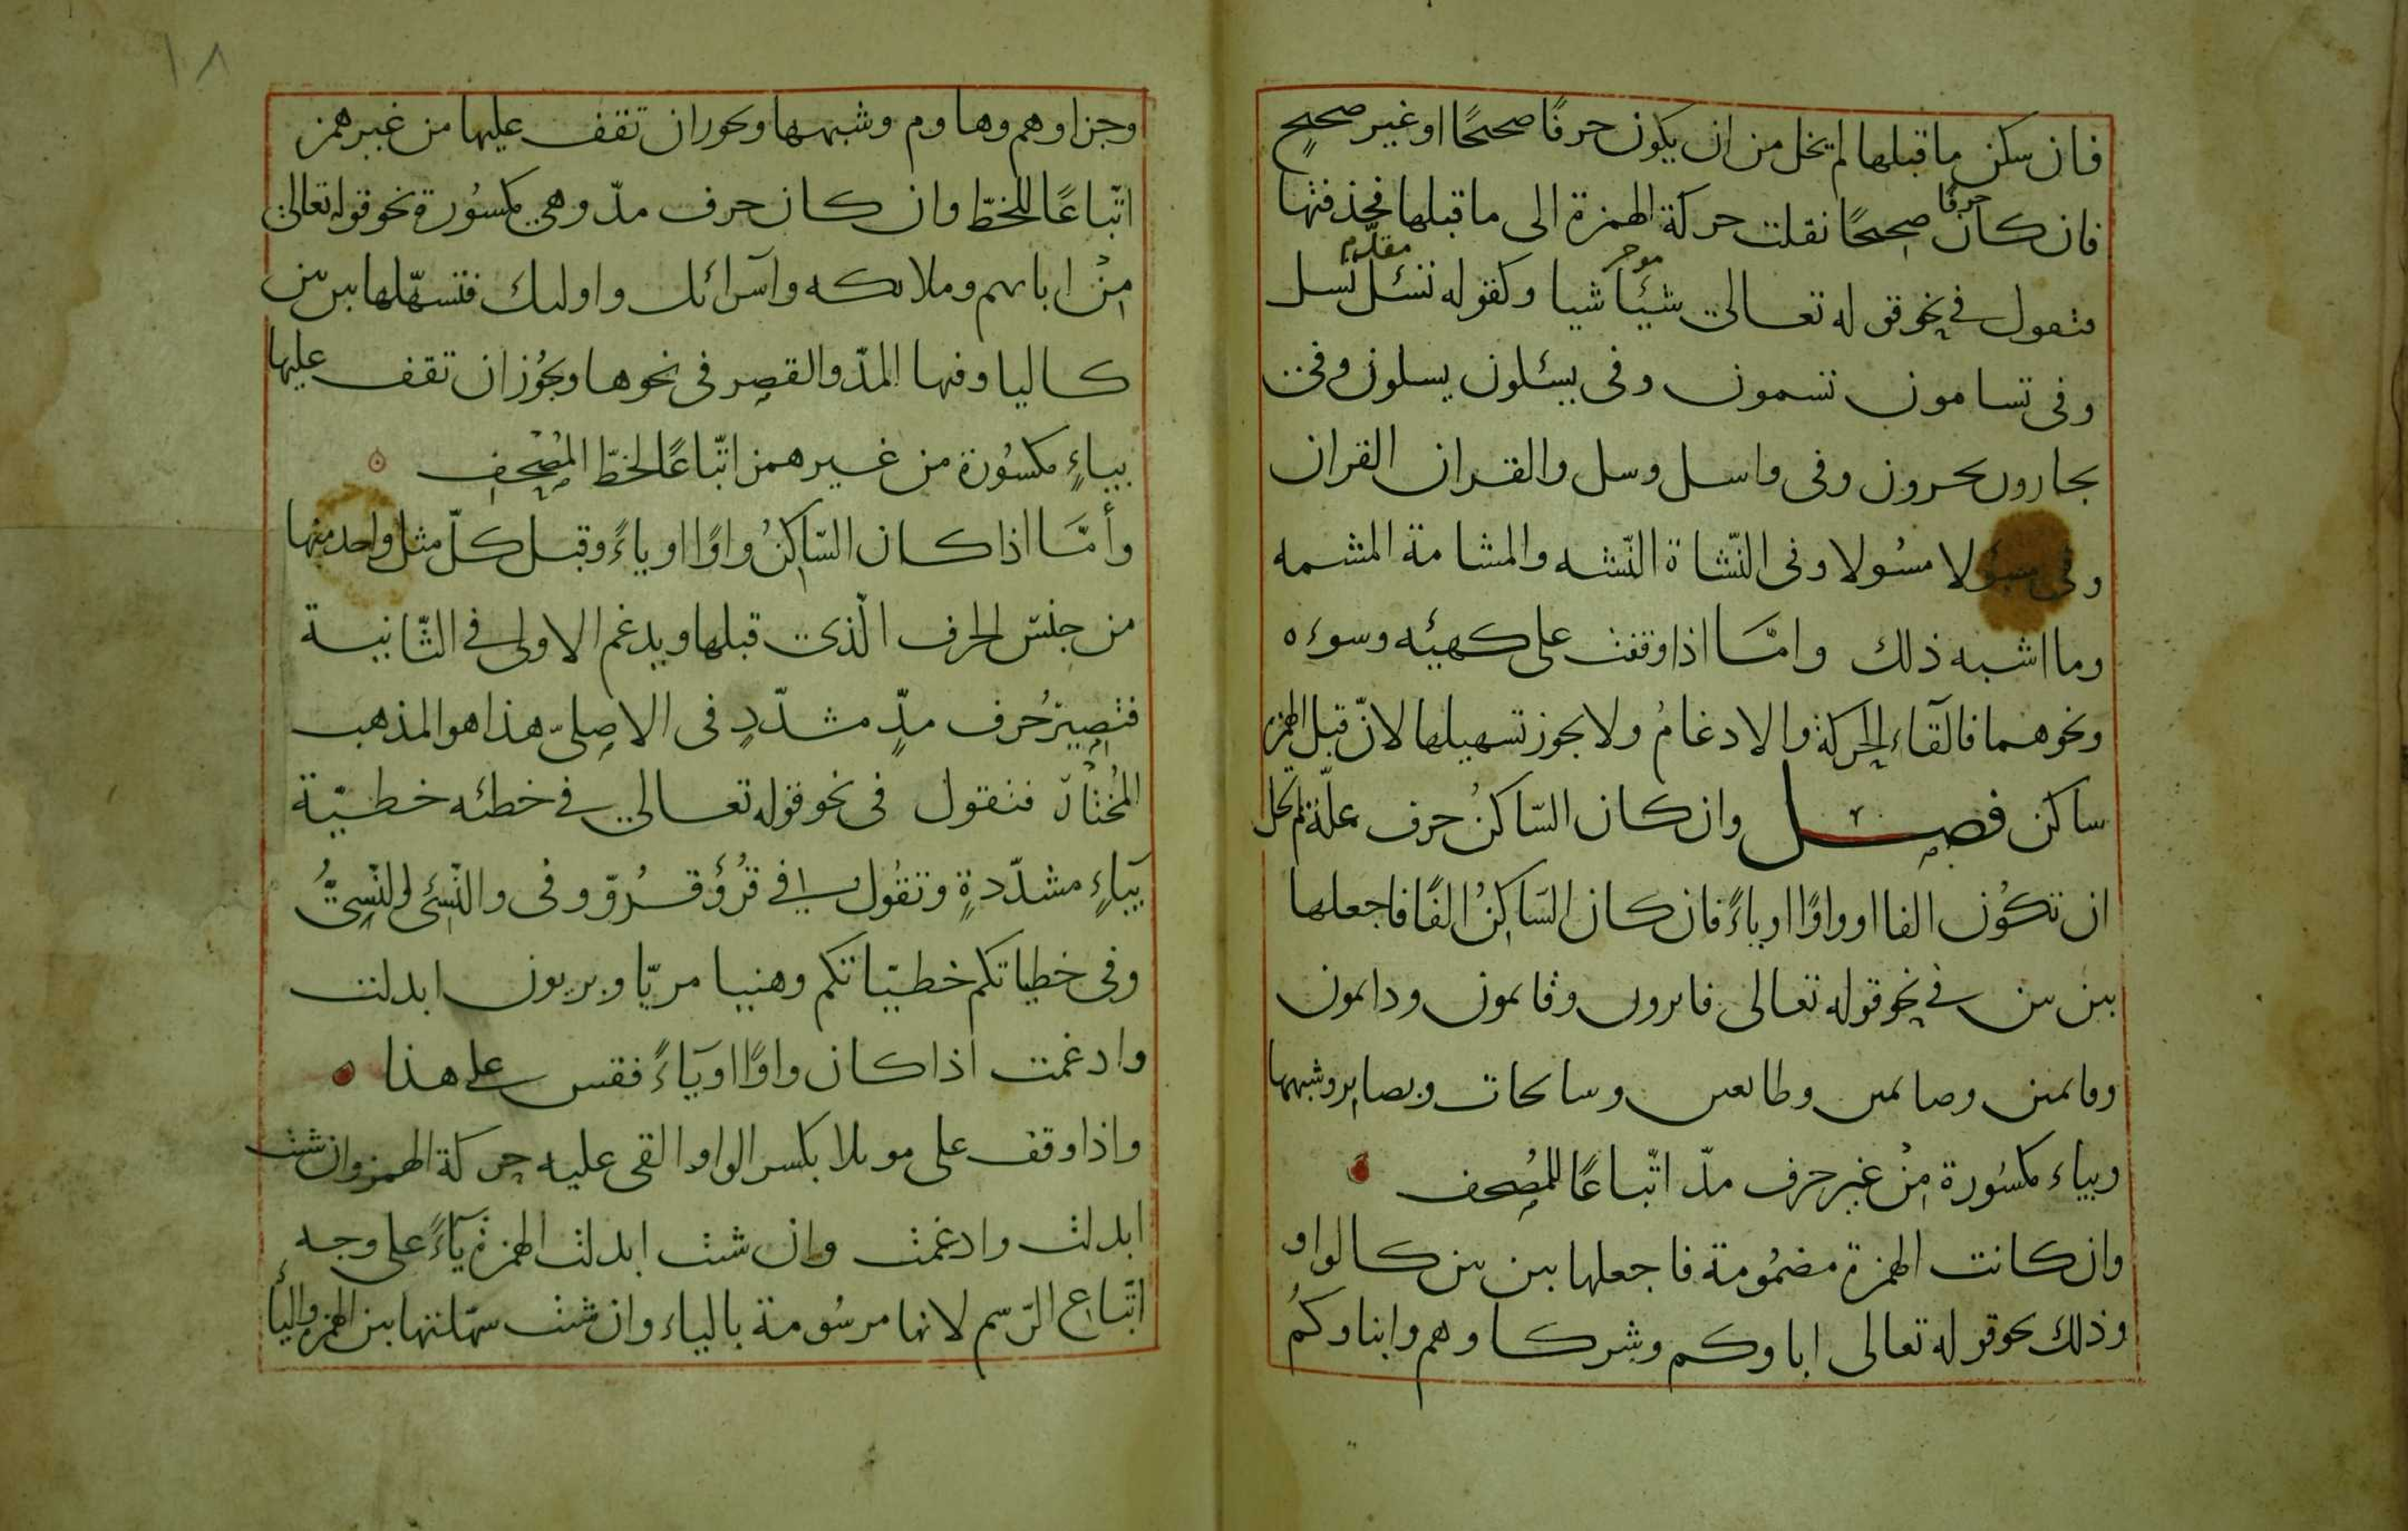 فان سكن ما قبلها لم يخل من ان يكون حرفًا صحيحًا او غير صحيحٍ
فان كان حرفا صحيحًا نقلت حركة الهمزة الى ما قبلها فحذفتها
فتقول في نحو قوله تعالى شيئا شيا وكقوله نسئل نسل
موخر مقدّم
وفى تسامون تسمون وفى يسئلون يسلون وفى
يجارون يجرون وفى واسل وسل والقران القران
وفى مسؤلا مسُولا وفى النّشاة النّشه والمشامة المشمه
وما اشبه ذلك وامّا اذا وقفت على كهيئه وسوءه
ونحوهما فالقاء الحركة والادغامُ ولا يجوز تسهيلها لانّ قبل الهمزة
ساكن فصل وان كان السّاكنُ حرف علّة لم تخل
ان تكوُن الفا او واوًا او ياءً فان كان السّاكِنُ الفًا فاجعلها
بين بين في نحو قوله تعالى فايرون وقايمون ودايمون
وقايمين وصايمين وطايعين وسايحات وبصاير وشبهها
وبياء مكسُورة مِنْ غير حرف مدّ اتّباعًا للمُصِحف
وان كانت الهمزة مضمُومة فاجعلها بين بين كالواو
وذلك نحو قوله تعالى اباوكم وشركاوهم وابناوكُم
١٨
وجزاوهم وهاوم وشبهها ويجوز ان تقف عليها من غير همز
اتّباعًا للخطّ وان كان حرف مدّ وهي مكسُورة نحو قوله تعالى
مِنْ ابايهم وملايكه واسرائل واوليك فتسهّلها بين بين
كاليا وفيها المدّ والقصر فى نحوها ويجُوز ان تقف عليها
بياءٍ مكسُورة من غير همز اتّباعًا لخطّ المُصِحِف
وأمّا اذا كان السّاكِنُ واوًا او ياءً وقبل كلّ مثل واحد منها
من جنس الحرف الّذى قبلها ويدغم الاولى في الثّانية
فتصِير حُرف مدٍّ مشدّدٍ فى الاصلىّ هذا هو المذهب
المُختار فتقول فى نحو قوله تعالى في خطئه خطيّة
بياءٍ مشدّدةٍ وتقُول في قُرُؤ قُرُوّ وفى والنّسِئ والنّسِىُّ
وفى خطياتكم خطيّاتكم وهنيا مريّا وبريون ابدلت
وادغمت اذا كان واوًا او ياءً فقس على هذا
واذا وقف على مويلا بكسر الواو القى عليه حركة الهمز وان شت
ابدلت وادغمت وان شت ابدلت الهمزة ياءً على وجه
اتّباع الرّسم لانها مرسُومة بالياء وان شت سهّلتها بين الهمز والياء